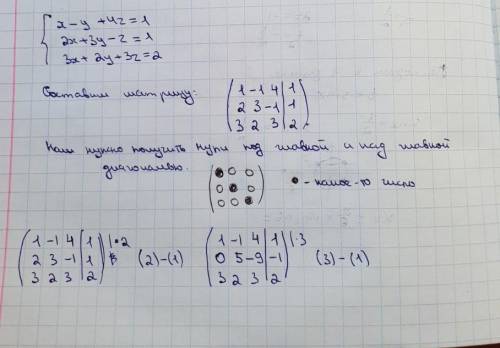 x - y + 4z = 1
2x + 3y - z = 1
3x + 2y + 3z = 2
Составим матрицу:
1 -1 4 | 1
2 3 -1 | 1
3 2 3 | 2
Нам нужно получить нули под главной и над главной
диагональю.
- какое-то число
1 -1 4 | 1 |·2
2 3 -1 | 1
3 2 3 | 2
(2)-(1)
1 -1 4 | 1 |·3
0 5 -9 | -1
3 2 3 | 2
(3)-(1)